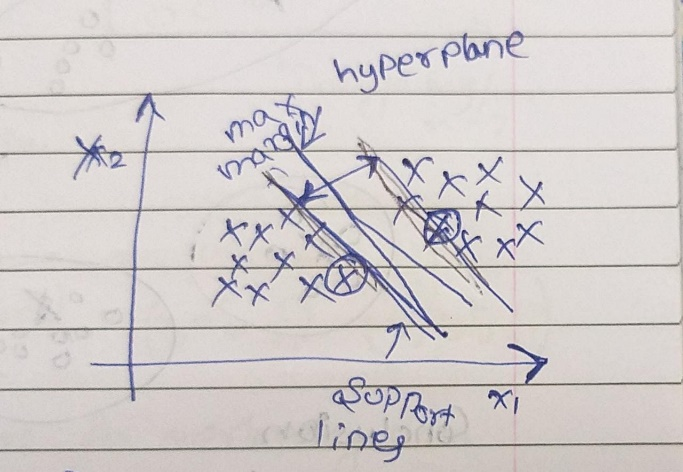 hyperplane
max
margin
x2
Support
lines
x1